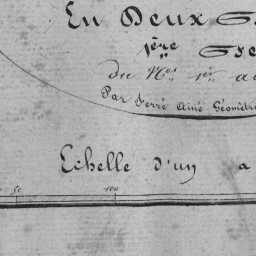 En Deux
1ère
du Nos 1er au
Par Ferré Ainé Géomètre
Echelle d'un a
50 100